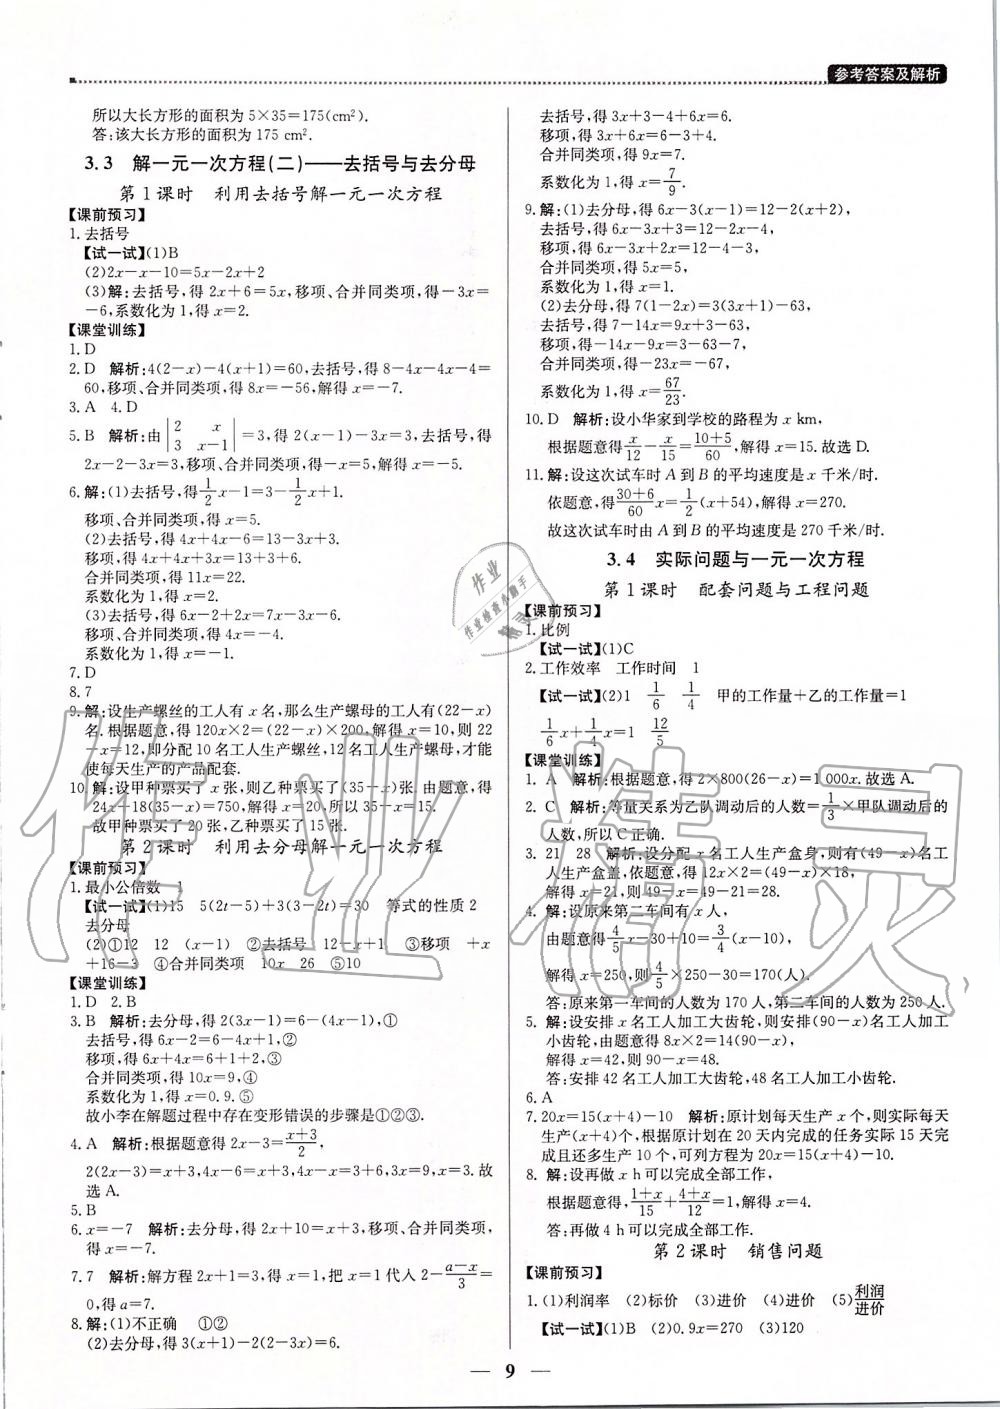 参考答案及解析
所以大长方形的面积为 5×35=175(cm²).
答:该大长方形的面积为 175 cm².
3.3 解一元一次方程(二)——去括号与去分母
第1课时 利用去括号解一元一次方程
【课前预习】
1.去括号
【试一试】(1)B
(2)2x-x-10=5x-2x+2
(3)解:去括号,得 2x+6=5x,移项、合并同类项,得-3x=
-6,系数化为 1,得 x=2.
【课堂训练】
1.D
2.D 解析:4(2-x)-4(x+1)=60,去括号,得 8-4x-4x-4=
60,移项、合并同类项,得 8x=-56,解得 x=-7.
3.A 4.D
5.B 解析:由|2 x; 3 x-1|=3,得 2(x-1)-3x=3,去括号,得
2x-2-3x=3,移项、合并同类项,得-x=5,解得 x=-5.
6.解:(1)去括号,得 1/2 x-1=3-1/2 x+1.
移项、合并同类项,得 x=5.
(2)去括号,得 4x+4x-6=13-3x+3.
移项,得 4x+4x+3x=13+3+6.
合并同类项,得 11x=22.
系数化为 1,得 x=2.
(3)去括号,得 6x-2+2x=7x-3x-6.
移项、合并同类项,得 4x=-4.
系数化为 1,得 x=-1.
7.D
8.7
9.解:设生产螺丝的工人有 x 名,那么生产螺母的工人有(22-x)
名.根据题意,得 120x×2=(22-x)×200.解得 x=10,则 22
-x=12,即分配 10 名工人生产螺丝,12 名工人生产螺母,才能
使每天生产的产品配套.
10.解:设甲种票买了 x 张,则乙种票买了(35-x)张.由题意,得
24x+18(35-x)=750,解得 x=20,所以 35-x=15.
故甲种票买了 20 张,乙种票买了 15 张.
第2课时 利用去分母解一元一次方程
【课前预习】
1.最小公倍数 1
【试一试】(1)15 5(2t-5)+3(3-2t)=30 等式的性质 2
去分母
(2)①12 12 (x-1) ②去括号 12-x+1 ③移项 +x
+16-3 ④合并同类项 10x 26 ⑤10
【课堂训练】
1.D 2.B
3.B 解析:去分母,得 2(3x-1)=6-(4x-1),①
去括号,得 6x-2=6-4x+1,②
移项,得 6x+4x=6+1+2,③
合并同类项,得 10x=9,④
系数化为 1,得 x=0.9.⑤
故小李在解题过程中存在变形错误的步骤是①②③.
4.A 解析:根据题意得 2x-3=(x+3)/2,
2(2x-3)=x+3,4x-6=x+3,4x-x=3+6,3x=9,x=3.故
选 A.
5.B
6.x=-7 解析:去分母,得 2x+10=x+3,移项、合并同类项,
得 x=-7.
7.7 解析:解方程 2x+1=3,得 x=1,把 x=1 代入 2-(a-x)/3=
0,得 a=7.
8.解:(1)不正确 ①②
(2)去分母,得 3(x+1)-2(2-3x)=6.
去括号,得 3x+3-4+6x=6.
移项,得 3x+6x=6-3+4.
合并同类项,得 9x=7.
系数化为 1,得 x=7/9.
9.解:(1)去分母,得 6x-3(x-1)=12-2(x+2),
去括号,得 6x-3x+3=12-2x-4,
移项,得 6x-3x+2x=12-4-3,
合并同类项,得 5x=5,
系数化为 1,得 x=1.
(2)去分母,得 7(1-2x)=3(3x+1)-63,
去括号,得 7-14x=9x+3-63,
移项,得-14x-9x=3-63-7,
合并同类项,得-23x=-67,
系数化为 1,得 x=67/23.
10.D 解析:设小华家到学校的路程为 x km,
根据题意得 x/12-x/15=(10+5)/60,解得 x=15.故选 D.
11.解:设这次试车时 A 到 B 的平均速度是 x 千米/时.
依题意,得 (30+6)/60 x=1/2(x+54),解得 x=270.
故这次试车时由 A 到 B 的平均速度是 270 千米/时.
3.4 实际问题与一元一次方程
第1课时 配套问题与工程问题
【课前预习】
1.比例
【试一试】(1)C
2.工作效率 工作时间 1
【试一试】(2)1 1/6 1/4 甲的工作量+乙的工作量=1
1/6 x+1/4 x=1 12/5
【课堂训练】
1.A 解析:根据题意,得 2×800(26-x)=1 000x.故选 A.
2.C 解析:等量关系为乙队调动后的人数=1/3×甲队调动后的
人数,所以 C 正确.
3.21 28 解析:设分配 x 名工人生产盒身,则有(49-x)名工
人生产盒盖,依题意,得 12x×2=(49-x)×18,
解得 x=21,则 49-x=49-21=28.
4.解:设原来第二车间有 x 人,
由题意得 4/5 x-30+10=3/4(x-10),
解得 x=250,则 4/5×250-30=170(人).
答:原来第一车间的人数为 170 人,第二车间的人数为 250 人.
5.解:设安排 x 名工人加工大齿轮,则安排(90-x)名工人加工
小齿轮,由题意得 8x×2=14(90-x),
解得 x=42,则 90-x=48.
答:安排 42 名工人加工大齿轮,48 名工人加工小齿轮.
6.A
7.20x=15(x+4)-10 解析:原计划每天生产 x 个,则实际每天
生产(x+4)个,根据原计划在 20 天内完成的任务实际 15 天完
成且还多生产 10 个,可列方程为 20x=15(x+4)-10.
8.解:设再做 x h 可以完成全部工作,
根据题意得,(1+x)/15+(4+x)/12=1,解得 x=4.
答:再做 4 h 可以完成全部工作.
第2课时 销售问题
【课前预习】
1.(1)利润率 (2)标价 (3)进价 (4)进价 (5)利润/进价
【试一试】(1)B (2)0.9x=270 (3)120
— 9 —
作业精灵